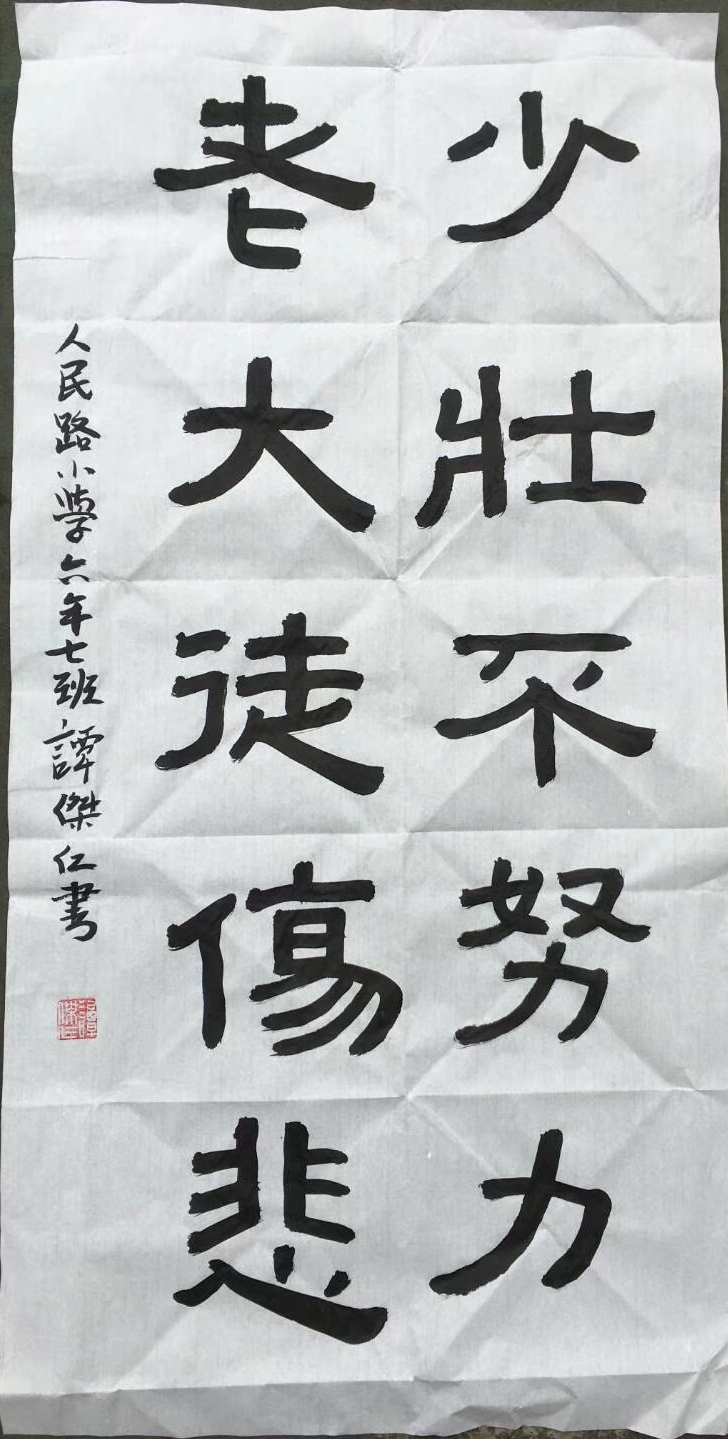 少壯不努力
老大徒傷悲
人民路小學六年七班譚傑仁書